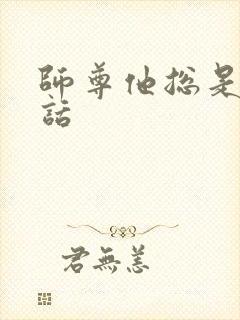 師尊他總是
話
君無恙